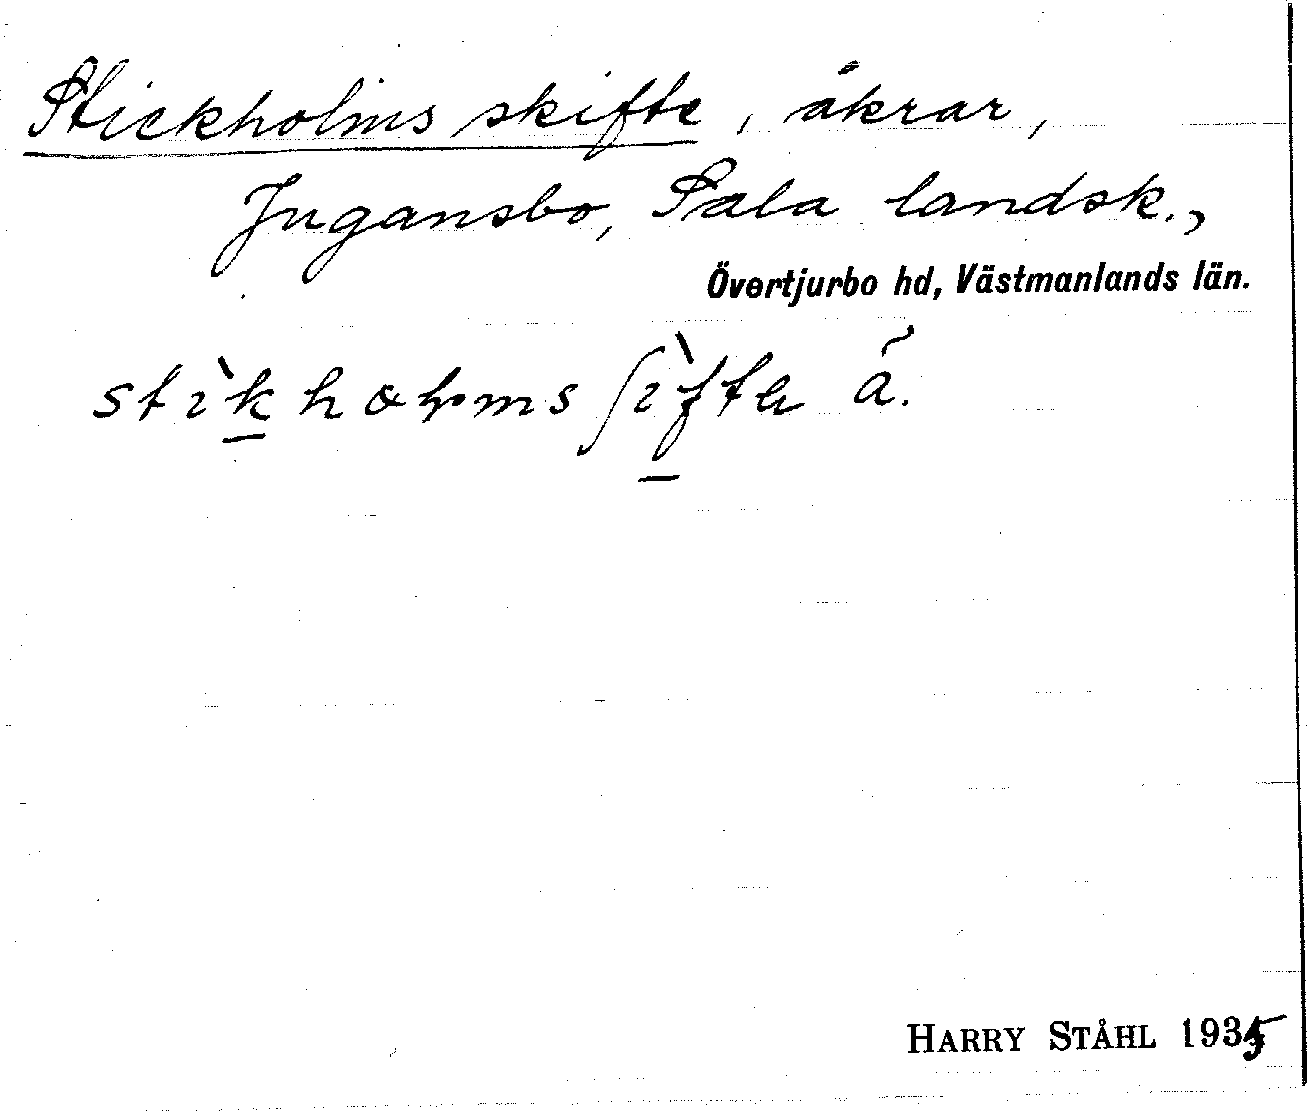 Stickholms skifte, åkrar,
Jugansbo, Sala landsk.,
Övertjurbo hd, Västmanlands län.
HARRY STÅHL 1935